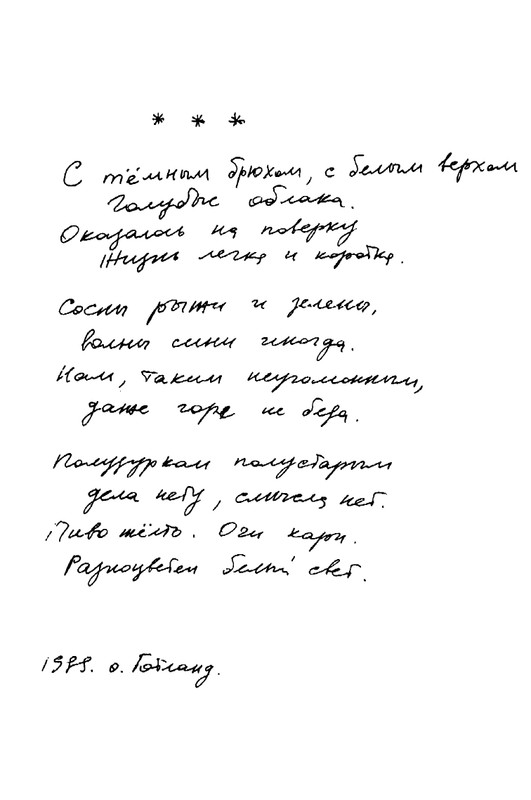 * * *
С тёмным брюхом, с белым верхом
Голубые облака.
Оказалось на поверку
Жизнь легка и коротка.
Сосны рыжи и зелены,
волны сини иногда.
Нам, таким неугомонным,
даже горе не беда.
Полудуркам полустарым
дела нету, смысла нет.
Пиво жёлто. Очи кари.
Разноцветен белый свет.
о. Готланд.